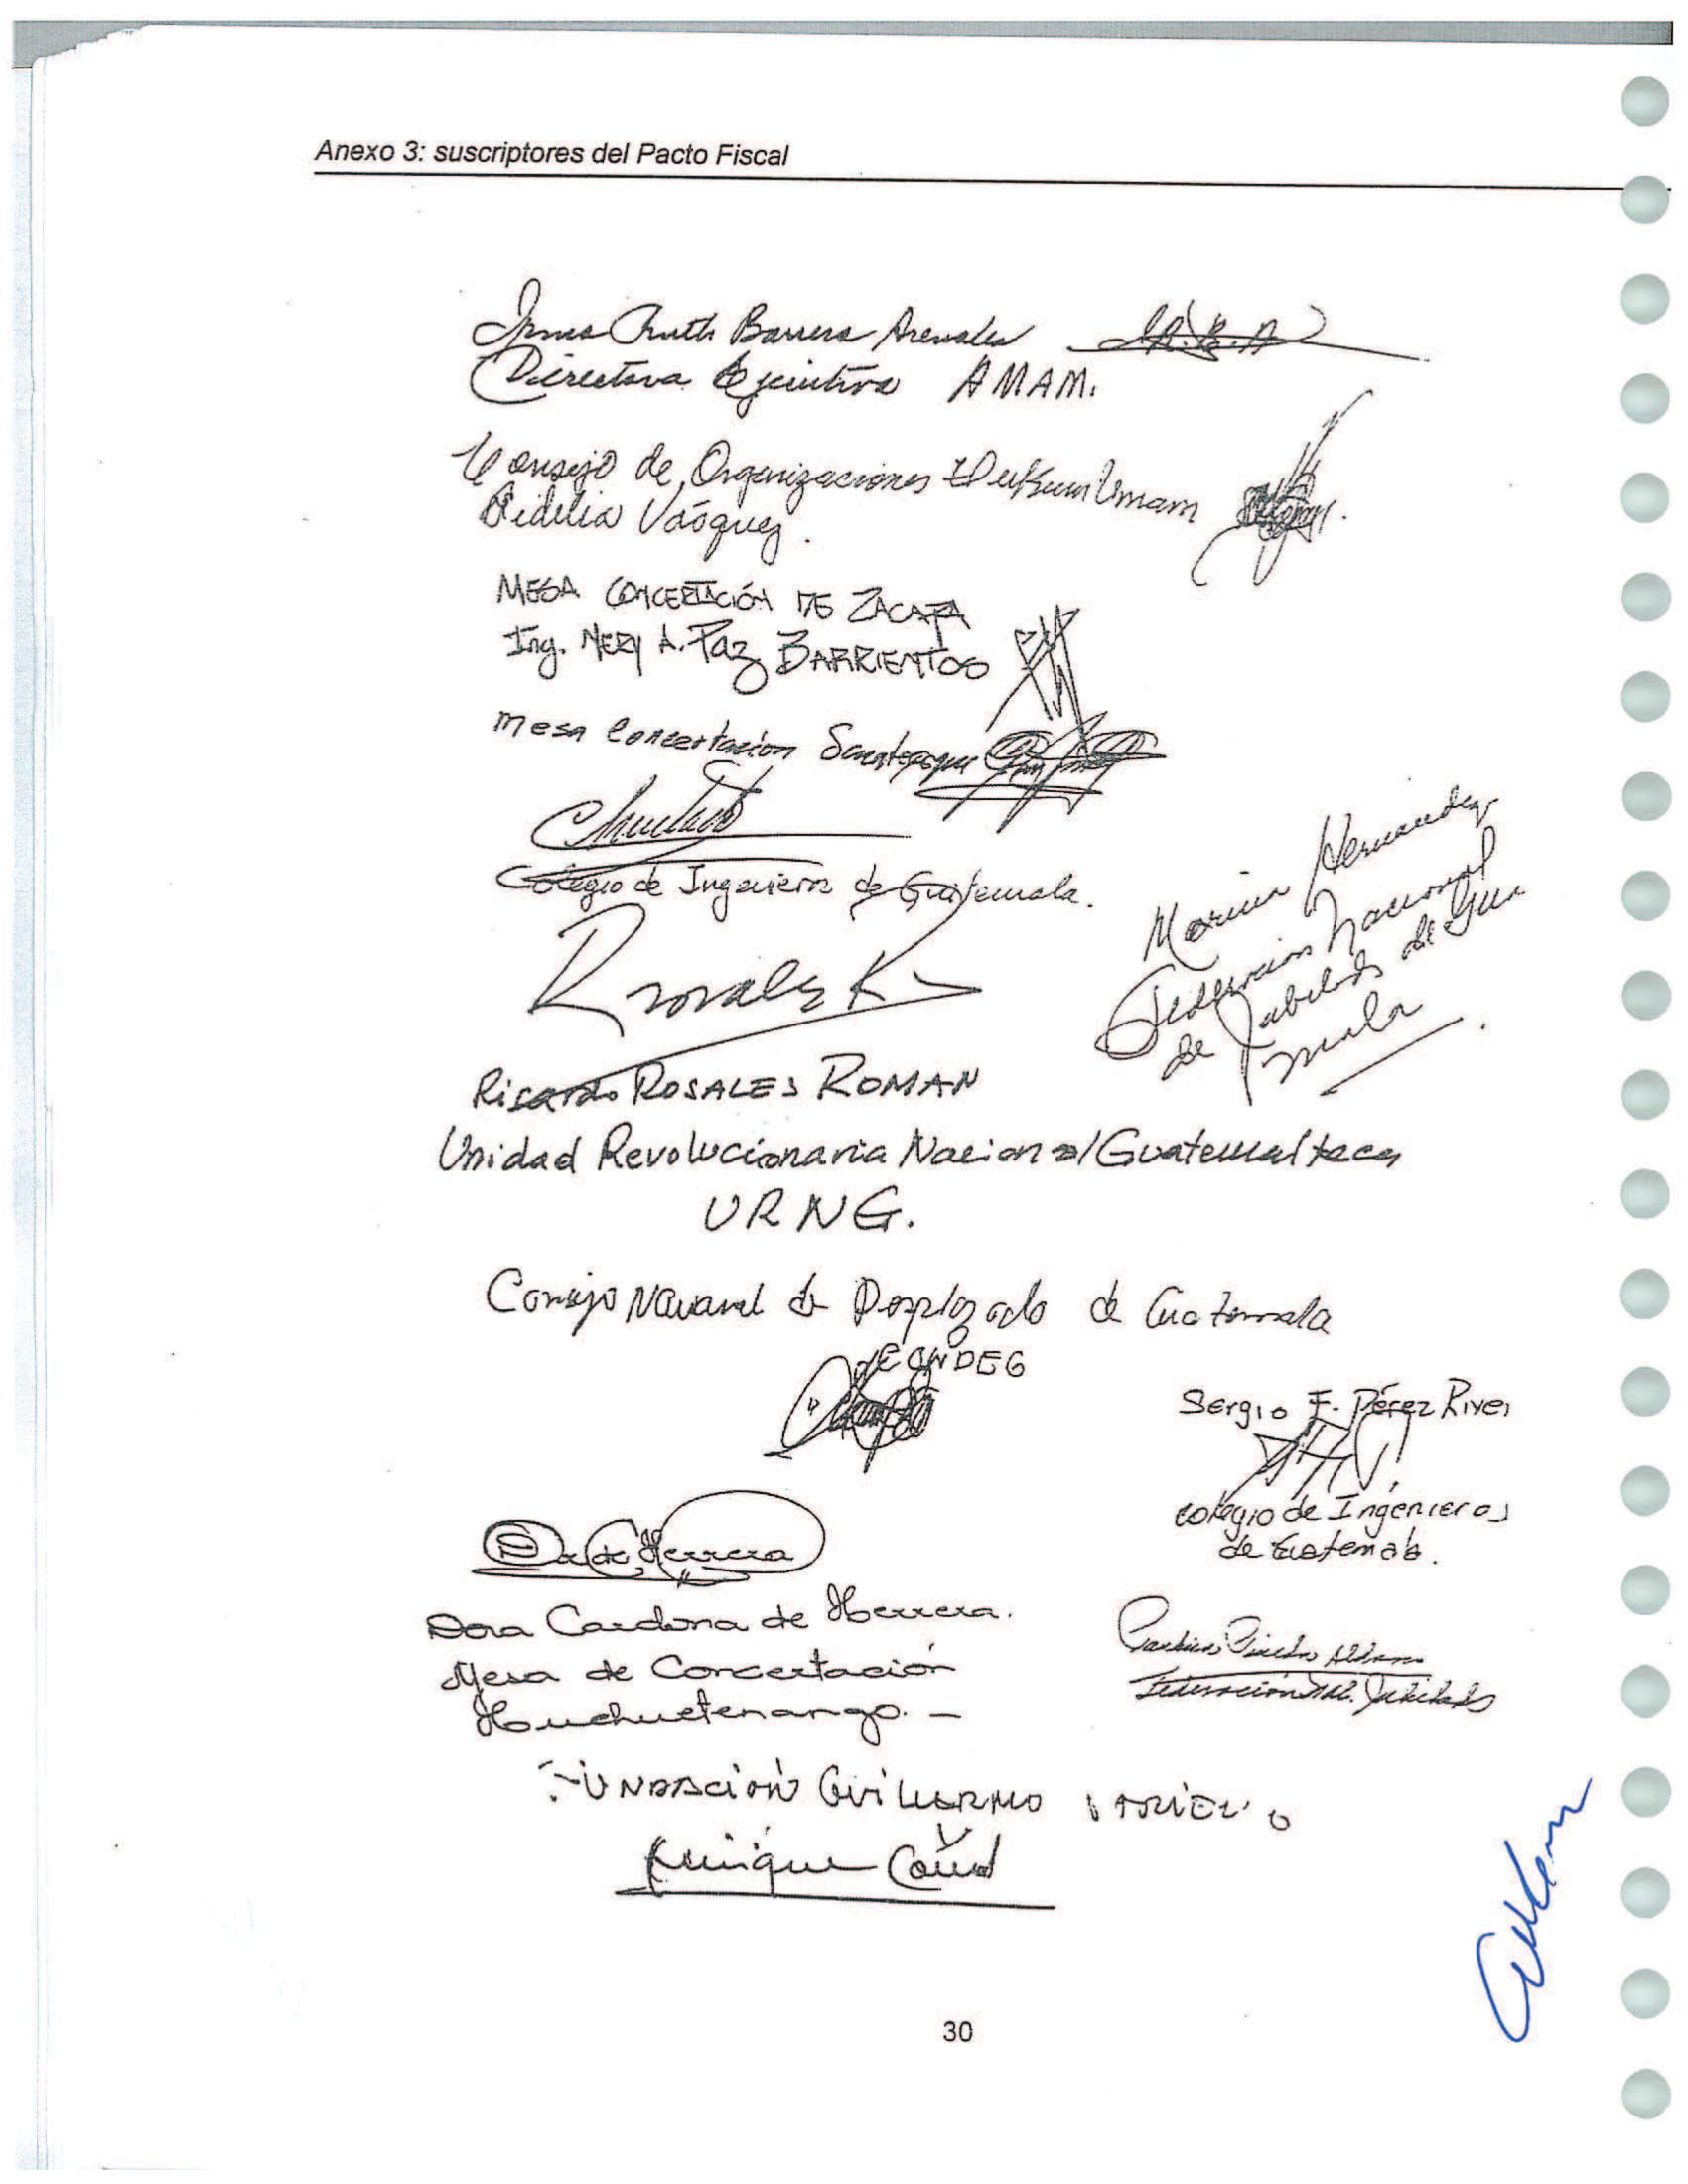 Anexo 3: suscriptores del Pacto Fiscal
Irma Ruth Barrera Arenales I.R.B.A
Directora Ejecutiva AMAM.
Consejo de Organizaciones
Fidelia Vásquez.
MESA CONCERTACIÓN DE ZACAPA
Ing. NERY A. Paz BARRIENTOS
Mesa Concertacion
Colegio de Ingenieros de Guatemala.
Marina Hernandez
Federacion Nacional
de Jubilados de Gua
mala
Rrosales R
Ricardo ROSALES ROMAN
Unidad Revolucionaria Nacional Guatemalteca
URNG.
Consejo Nacional de Desplazado de Guatemala
CONDEG
Sergio F. Pérez River
Colegio de Ingenieros
de Guatemala.
D. de Herrera
Dora Cardona de Herrera.
Mesa de Concertación
Huehuetenango. -
Federación Nal. Jubilados
FUNDACIÓN GUILLERMO TORIELLO
Enrique
30